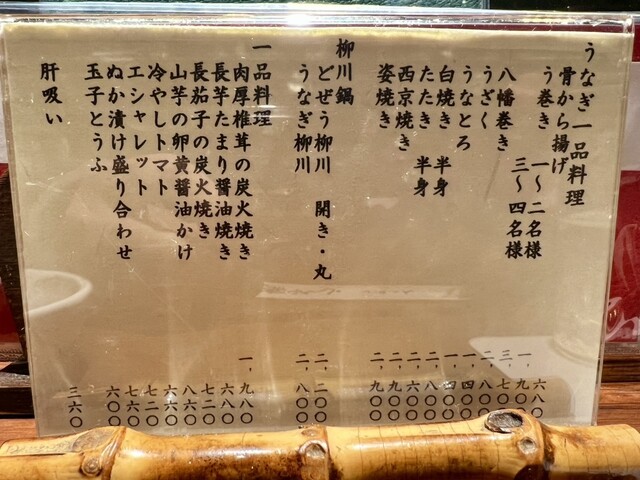 うなぎ一品料理
骨から揚げ 六八〇
う巻き 一～二名様 一，九〇〇
三～四名様 三，七〇〇
八幡巻き 二，八〇〇
うざく 一，四〇〇
うなとろ 一，四〇〇
白焼き 半身 二，八〇〇
たたき 半身 二，六〇〇
西京焼き 二，九〇〇
姿焼き 二，九〇〇
柳川鍋
どぜう柳川 開き・丸 二，二〇〇
うなぎ柳川 二，八〇〇
一品料理
肉厚椎茸の炭火焼き 一，九八〇
長芋たまり醤油焼き 六八〇
長茄子の炭火焼き 七二〇
山芋の卵黄醤油かけ 八六〇
冷やしトマト 六六〇
エシャレット 七二〇
ぬか漬け盛り合わせ 七六〇
玉子とうふ 六〇〇
肝吸い 三六〇